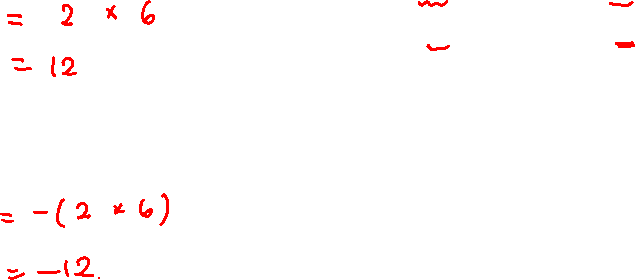 = 2 × 6
= 12
= -(2 × 6)
= -12.